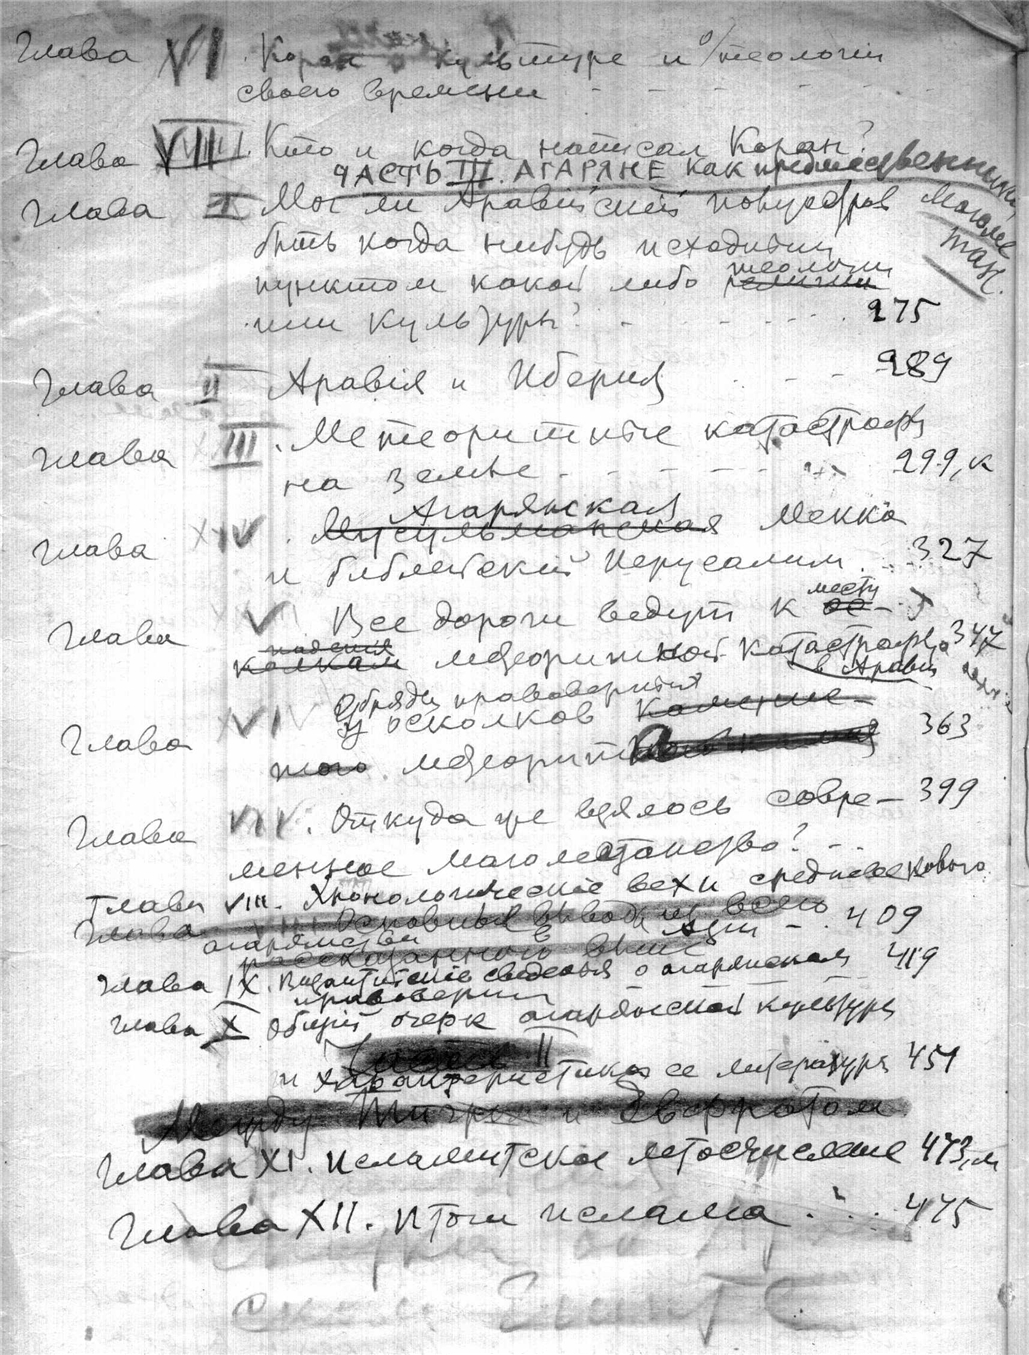 Глава VI. Коран о культуре и теологии
своего времени - - - -
Глава VII. Кто и когда написал Коран?
ЧАСТЬ III. АГАРЯНЕ как предшественники
Магометан.
Глава I Мог ли Аравийский полуостров
быть когда нибудь исходным
теологии
пунктом какой либо религии
или культуры? - - - - 275
Глава II Аравия и Иберия - - - 289
Глава III. Метеоритные катастрофы
на земле - - - - - 299, к
Агарянская
Глава IV. Мусульманская Мекка
и библейский Иерусалим . . 327
месту
Глава V Все дороги ведут к
падения
метеоритной катастрофы 347
в Аравии
Обряды правоверия
Глава VI У осколков камен-
ного метеорита 363
Глава VII. Откуда же взялось совре- 399
менное магометанство? - - -
Глава VIII. Хронологические вехи средневекового
Глава Основные выводы из всего
агарянства
рассказанного выше - - 409
Глава IX. Византийские сведенья о агарянском 419
правоверии
Глава X Общий очерк агарянской культуры
Часть II
и характеристика ее литературы 451
Между Тигром и Евфратом
Глава XI. Исламитское летосчисление 473, м
Глава XII. Итоги ислама . . . 475